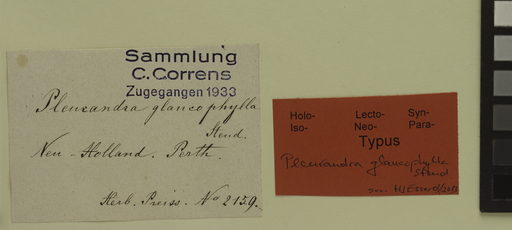 Sammlung
C. Correns
Zugegangen 1933
Pleurandra glaucophylla
Steud.
Neu-Holland. Perth.
Herb. Preiss. No 2159.
Holo- Lecto- Syn-
Iso- Neo- Para-
Typus
Pleurandra glaucophylla
Steud